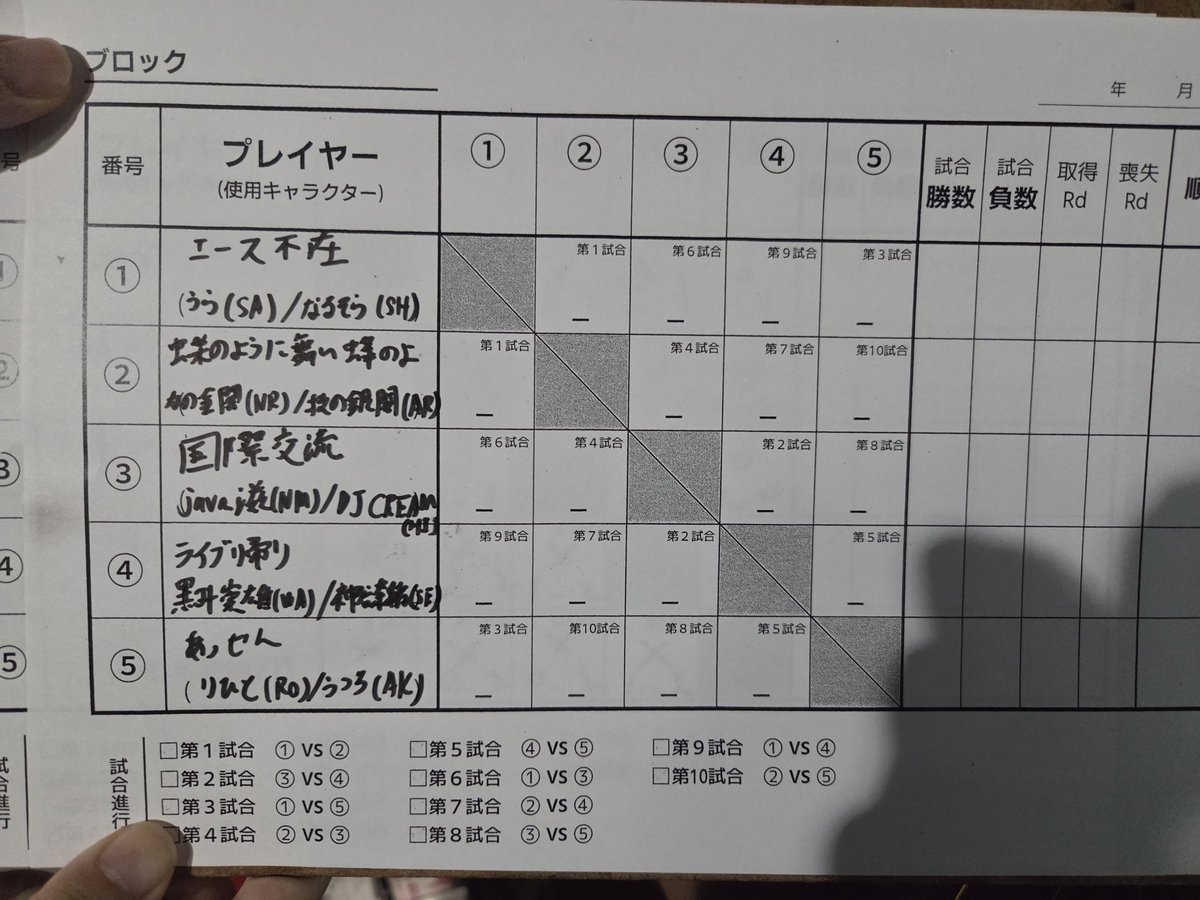 ブロック
年 月
番号 プレイヤー (使用キャラクター) ① ② ③ ④ ⑤ 試合勝数 試合負数 取得Rd 喪失Rd 順
① エース不在 第1試合 第6試合 第9試合 第3試合
(うら(SA)/なるぞら(SH)
② 蝶のように舞い蜂のよ 第1試合 第4試合 第7試合 第10試合
力の金閣(NR)/技の銀閣(AR)
③ 国際交流 第6試合 第4試合 第2試合 第8試合
(java(NM)/DJ CREAM
④ ライブリ乗り 第9試合 第7試合 第2試合 第5試合
⑤ あっせん 第3試合 第10試合 第8試合 第5試合
(りひと(RO)/うつろ(AK)
試合進行
□第1試合 ① VS ② □第5試合 ④ VS ⑤ □第9試合 ① VS ④
□第2試合 ③ VS ④ □第6試合 ① VS ③ □第10試合 ② VS ⑤
□第3試合 ① VS ⑤ □第7試合 ② VS ④
□第4試合 ② VS ③ □第8試合 ③ VS ⑤